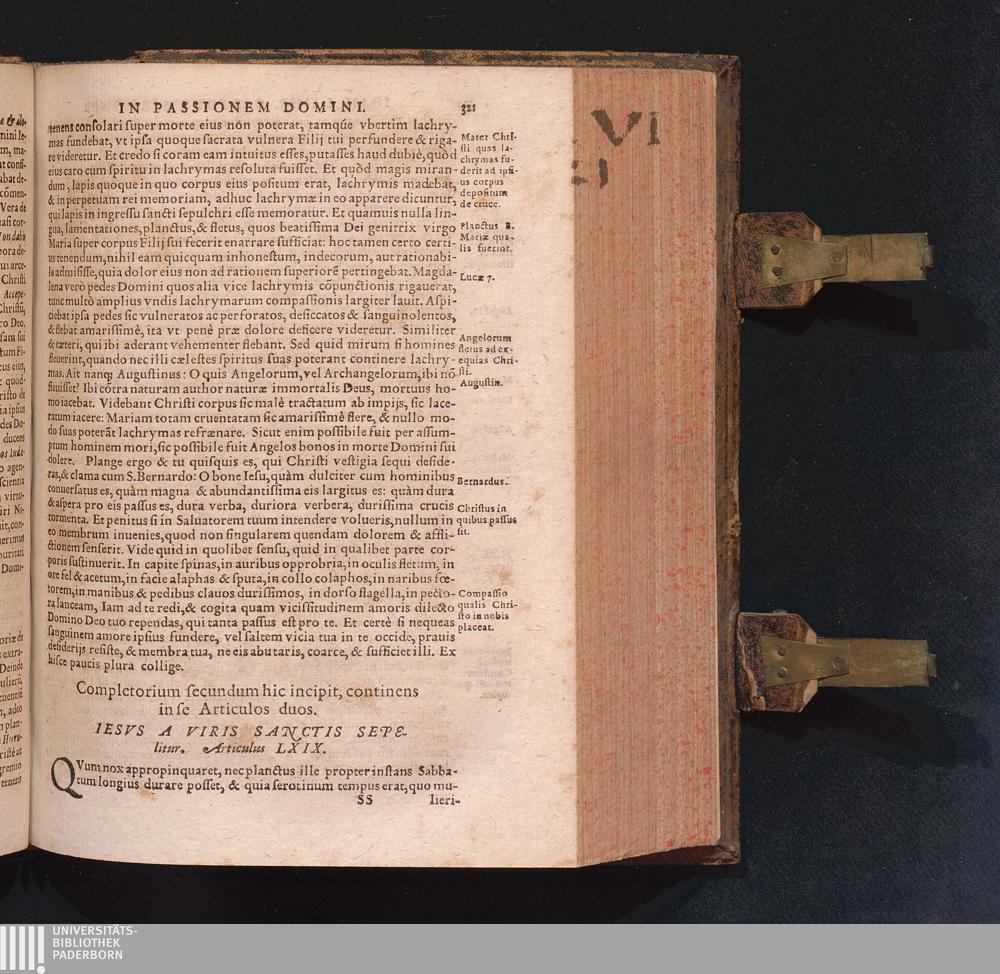 IN PASSIONEM DOMINI. 321
tenens consolari super morte eius non poterat, tamqúe vbertim lachry-
mas fundebat, vt ipsa quoque sacrata vulnera Filij tui perfundere & riga-
re videretur. Et credo si coram eam intuitus esses, putasses haud dubiè, quòd
eius caro cum spiritu in lachrymas resoluta fuisset. Et quòd magis miran-
dum, lapis quoque in quo corpus eius positum erat, lachrymis madebat,
& in perpetuam rei memoriam, adhuc lachrymæ in eo apparere dicuntur,
qui lapis in ingressu sancti sepulchri esse memoratur. Et quamuis nulla lin-
gua, lamentationes, planctus, & fletus, quos beatissima Dei genitrix virgo
Maria super corpus Filij sui fecerit enarrare sufficiat: hoc tamen certo certi-
us tenendum, nihil eam quicquam inhonestum, indecorum, aut rationabi-
le admisisse, quia dolor eius non ad rationem superiorē pertingebat. Magda-
lena verò pedes Domini quos alia vice lachrymis cōpunctionis rigauerat,
tunc multò amplius vndis lachrymarum compassionis largiter lauit. Aspi-
ciebat ipsa pedes sic vulneratos ac perforatos, desiccatos & sanguinolentos,
& flebat amarissimè, ita vt penè præ dolore deficere videretur. Similiter
& cæteri, qui ibi aderant vehementer flebant. Sed quid mirum si homines
fleuerint, quando nec illi cælestes spiritus suas poterant continere lachry-
mas. Ait nanq; Augustinus: O quis Angelorum, vel Archangelorum, ibi nō
fleuisset? Ibi cōtra naturam author naturæ immortalis Deus, mortuus ho-
mo iacebat. Videbant Christi corpus sic malè tractatum ab impijs, sic lace-
ratum iacere: Mariam totam cruentatam sic amarissimè flere, & nullo mo-
do suas poterāt lachrymas refrænare. Sicut enim possibile fuit per assum-
ptum hominem mori, sic possibile fuit Angelos bonos in morte Domini sui
dolere. Plange ergo & tu quisquis es, qui Christi vestigia sequi deside-
ras, & clama cum S. Bernardo: O bone Iesu, quàm dulciter cum hominibus
conuersatus es, quàm magna & abundantissima eis largitus es: quàm dura
& aspera pro eis passus es, dura verba, duriora verbera, durissima crucis
tormenta. Et penitus si in Saluatorem tuum intendere volueris, nullum in
eo membrum inuenies, quod non singularem quendam dolorem & affli-
ctionem senserit. Vide quid in quolibet sensu, quid in qualibet parte cor-
poris sustinuerit. In capite spinas, in auribus opprobria, in oculis fletum, in
ore fel & acetum, in facie alaphas & sputa, in collo colaphos, in naribus fœ-
torem, in manibus & pedibus clauos durissimos, in dorso flagella, in pecto-
ra lanceam, Iam ad te redi, & cogita quam vicissitudinem amoris dilecto
Domino Deo tuo rependas, qui tanta passus est pro te. Et certè si nequeas
sanguinem amore ipsius fundere, vel saltem vicia tua in te occide, prauis
desiderijs resiste, & membra tua, ne eis abutaris, coarce, & sufficiet illi. Ex
hisce paucis plura collige.
Completorium secundum hic incipit, continens
in se Articulos duos.
IESVS A VIRIS SANCTIS SEPE-
litur. Articulus LXIX.
QVum nox appropinquaret, nec planctus ille propter instans Sabba-
tum longius durare posset, & quia serotinum tempus erat, quo mu-
SS lieri-
Mater Chri-
sti quas la-
chrymas fu-
derit ad ipsi-
us corpus
depositum
de cruce.
Planctus B.
Mariæ qua-
lis fuerint.
Lucæ 7.
Angelorum
fletus ad ex-
equias Chri-
sti.
Augustin.
Bernardus.
Christus in
quibus passus
sit.
Compassio
qualis Chri-
sto in nobis
placeat.
VI
UNIVERSITÄTS-
BIBLIOTHEK
PADERBORN